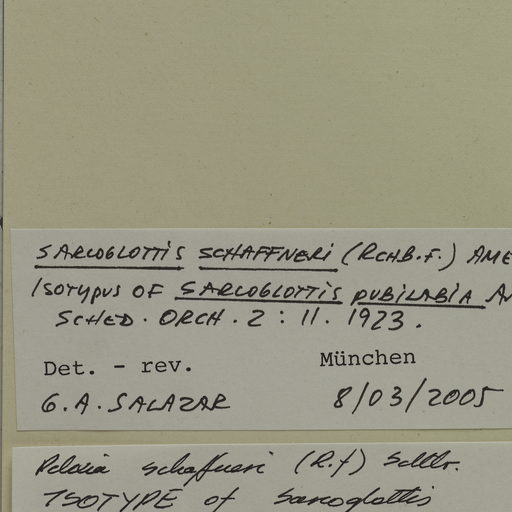 SARCOGLOTTIS SCHAFFNERI (RCHB.F.) AME
ISOTYPUS OF SARCOGLOTTIS PUBILABIA A
SCHED. ORCH. 2: 11. 1923.
Det. - rev. München
G.A. SALAZAR 8/03/2005
Pelexia schaffneri (R.f) Schltr.
ISOTYPE of Sarcoglottis